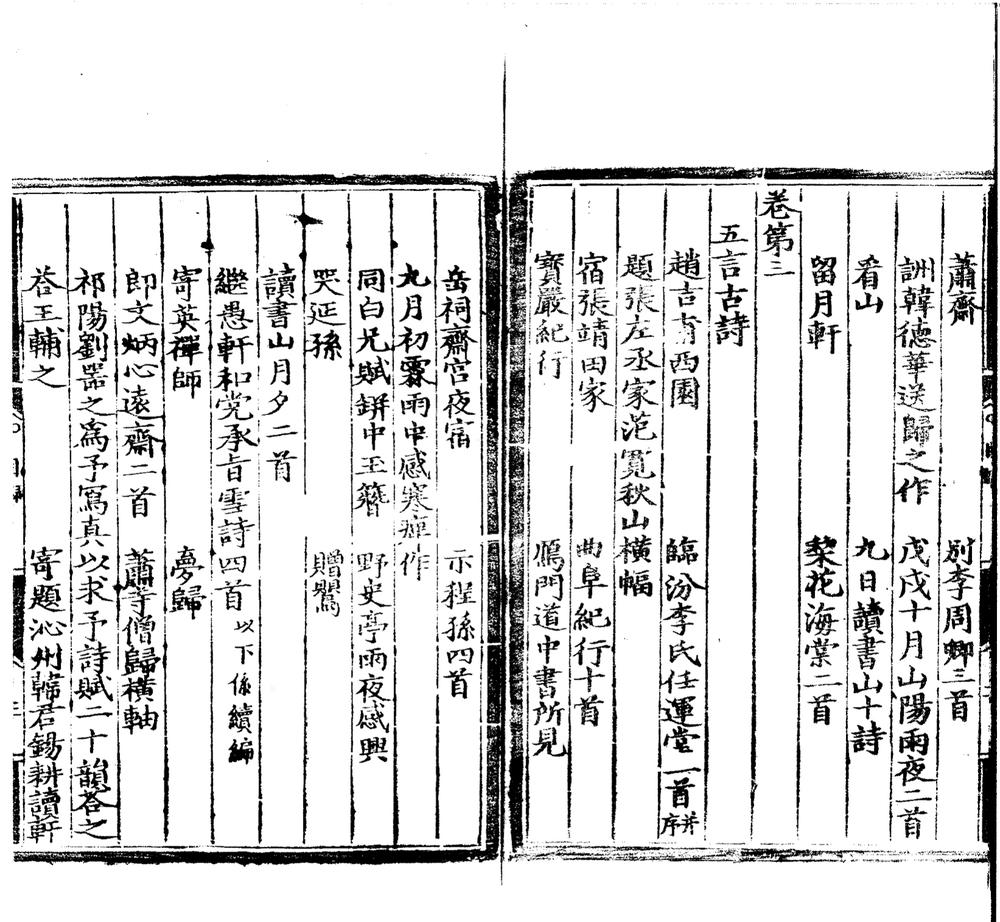 蕭齋 別李周卿三首
詶韓德華送歸之作 戊戌十月山陽雨夜二首
看山 九日讀書山十詩
留月軒 棃花海棠二首
卷第三
五言古詩
趙吉甫西園 臨汾李氏任運堂一首并序
題張左丞家范寬秋山橫幅
宿張靖田家 曲阜紀行十首
寶嚴紀行 鴈門道中書所見
岳祠齋宮夜宿 示程孫四首
九月初霖雨中感寒痓作
同白兄賦缾中玉簪 野史亭雨夜感興
哭延孫 贈鸎
讀書山月夕二首
繼愚軒和党承旨雪詩四首 以下係續編
寄英禪師 夢歸
郎文炳心遠齋二首 蕭寺僧歸橫軸
祁陽劉器之爲予寫真以求予詩賦二十韻荅之
荅王輔之 寄題沁州韓君錫耕讀軒